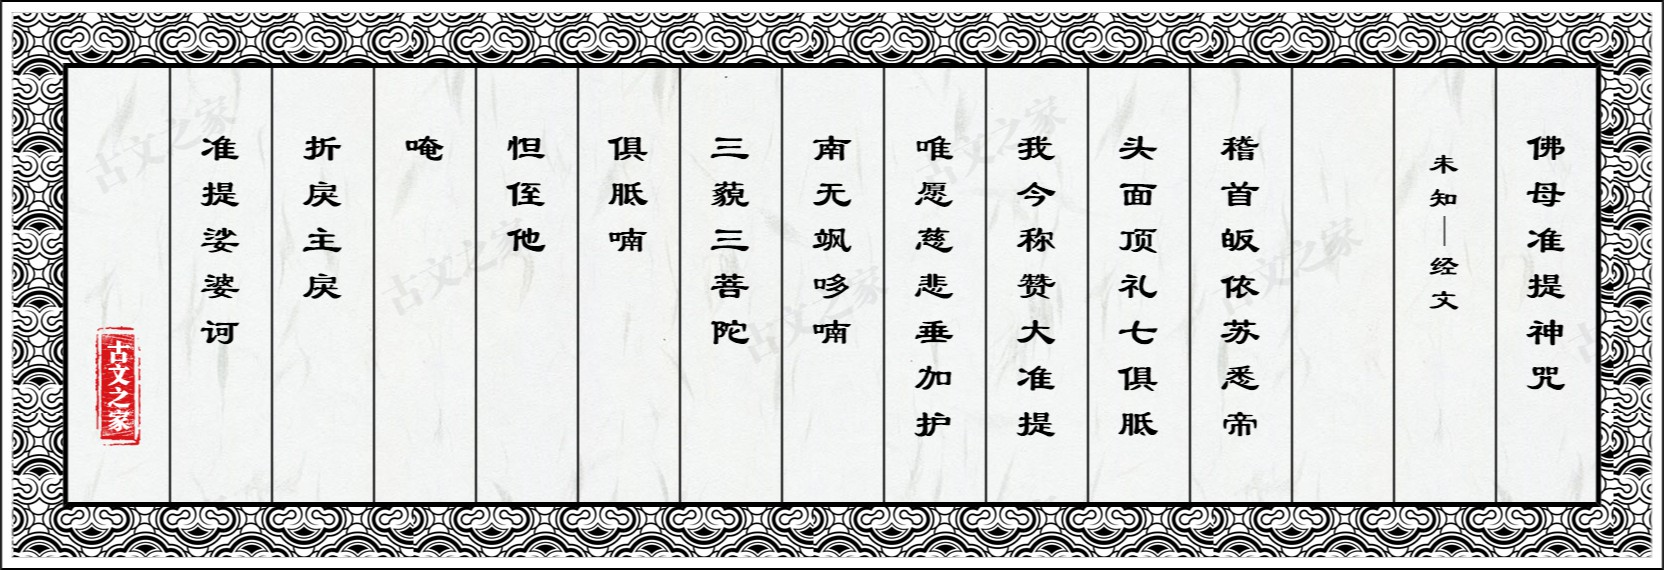 佛母准提神咒
未知—经文
稽首皈依苏悉帝
头面顶礼七俱胝
我今称赞大准提
唯愿慈悲垂加护
南无飒哆喃
三藐三菩陀
俱胝喃
怛侄他
唵
折戾主戾
准提娑婆诃
古文之家